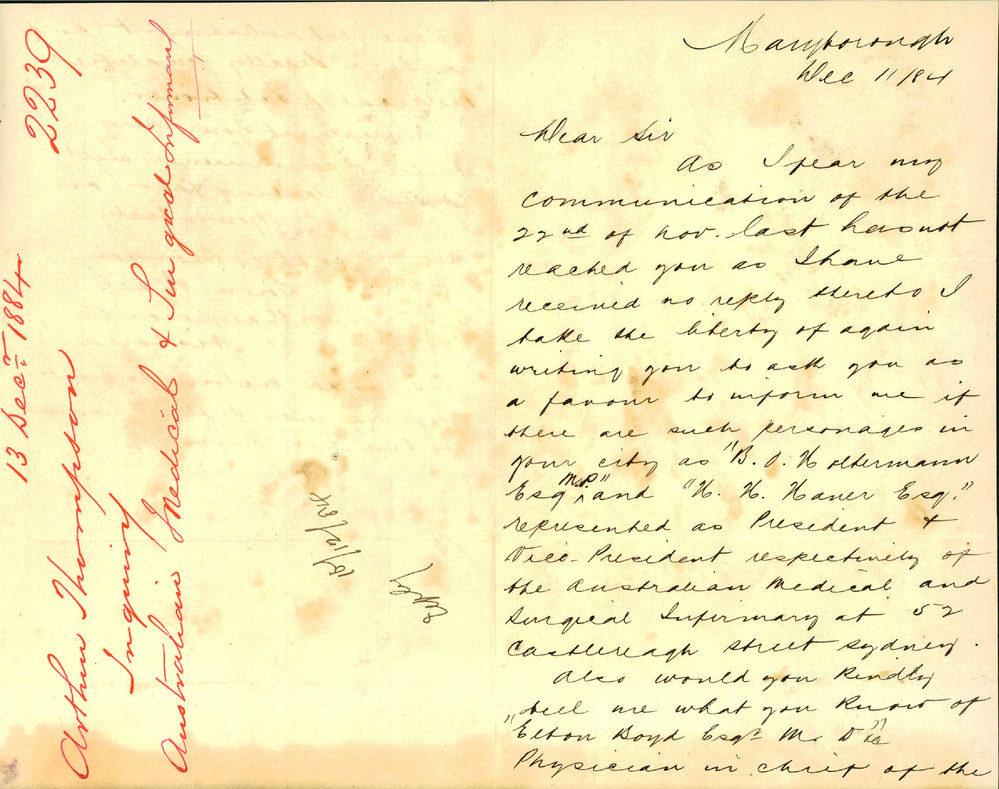 2239
13 Decr. 1884
Arthur Thompson
Inquiry
Australian Medical & Surgical Infirmary
Reply
15/12/84
Maryborough
Dec 11/84
Dear Sir
As I fear my
communication of the
22nd of Nov. last has not
reached you as I have
received no reply thereto I
take the liberty of again
writing you to ask you as
a favour to inform me if
there are such personages in
your city as "B. O. Holtermann
Esq M.P." and "H. H. Haner Esq."
represented as President &
Vice-President respectively of
the Australian Medical and
Surgical Infirmary at 52
Castlereagh street Sydney.
Also would you kindly
tell me what you know of
"Elton Boyd Esqr M. D" &c
Physician in chief of the